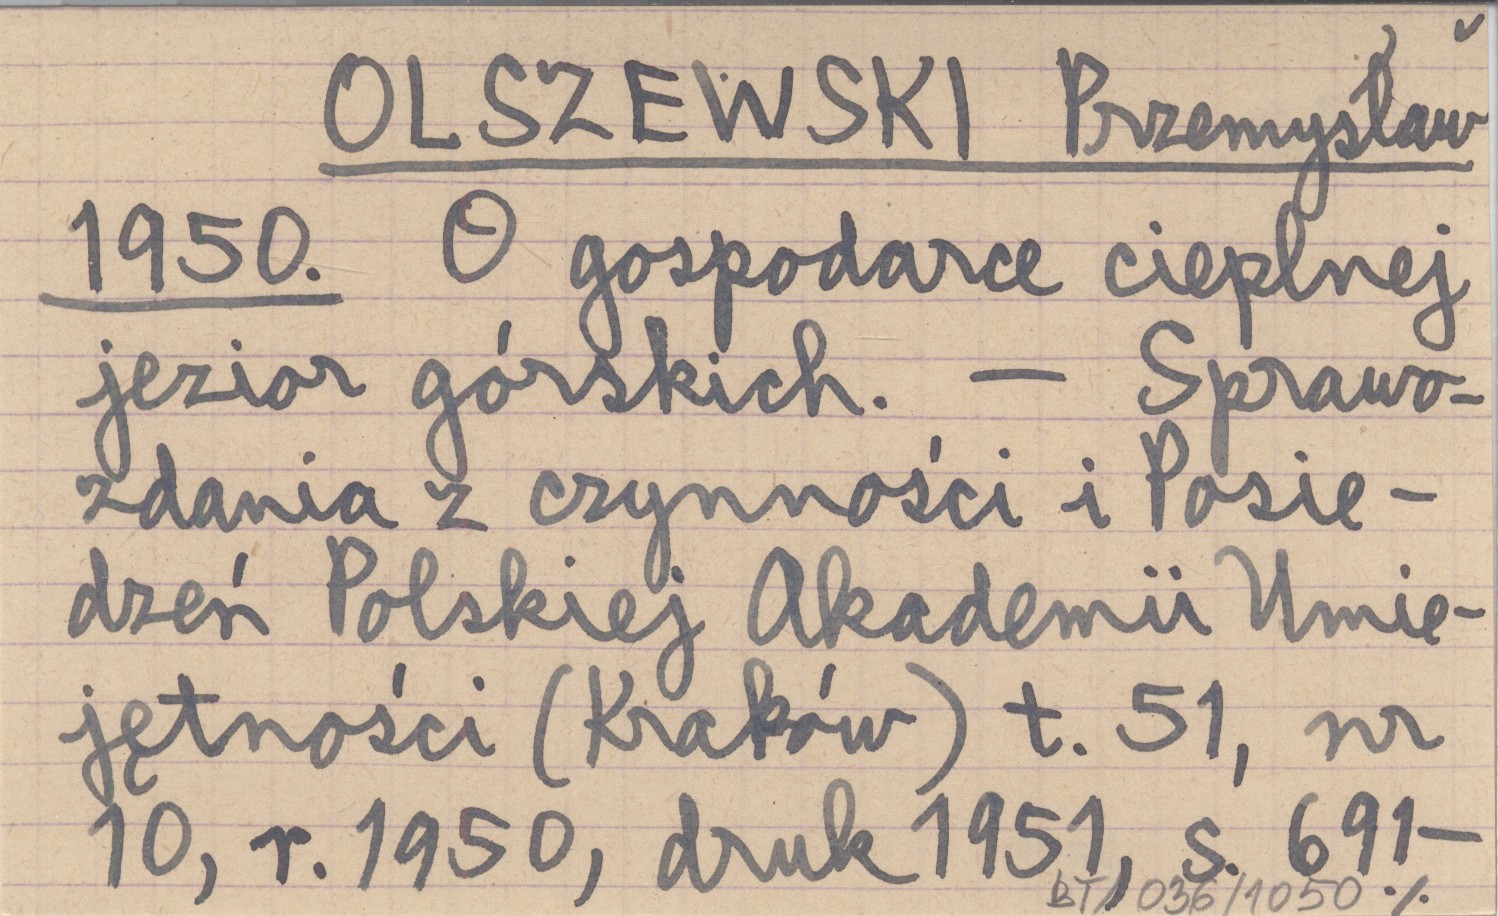 OLSZEWSKI Przemysław
1950. O gospodarce cieplnej
jezior górskich. — Sprawo-
zdania z czynności i Posie-
dzeń Polskiej Akademii Umie-
jętności (Kraków) t. 51, nr
10, r. 1950, druk 1951, s. 691-
BT/036/1050 ./.